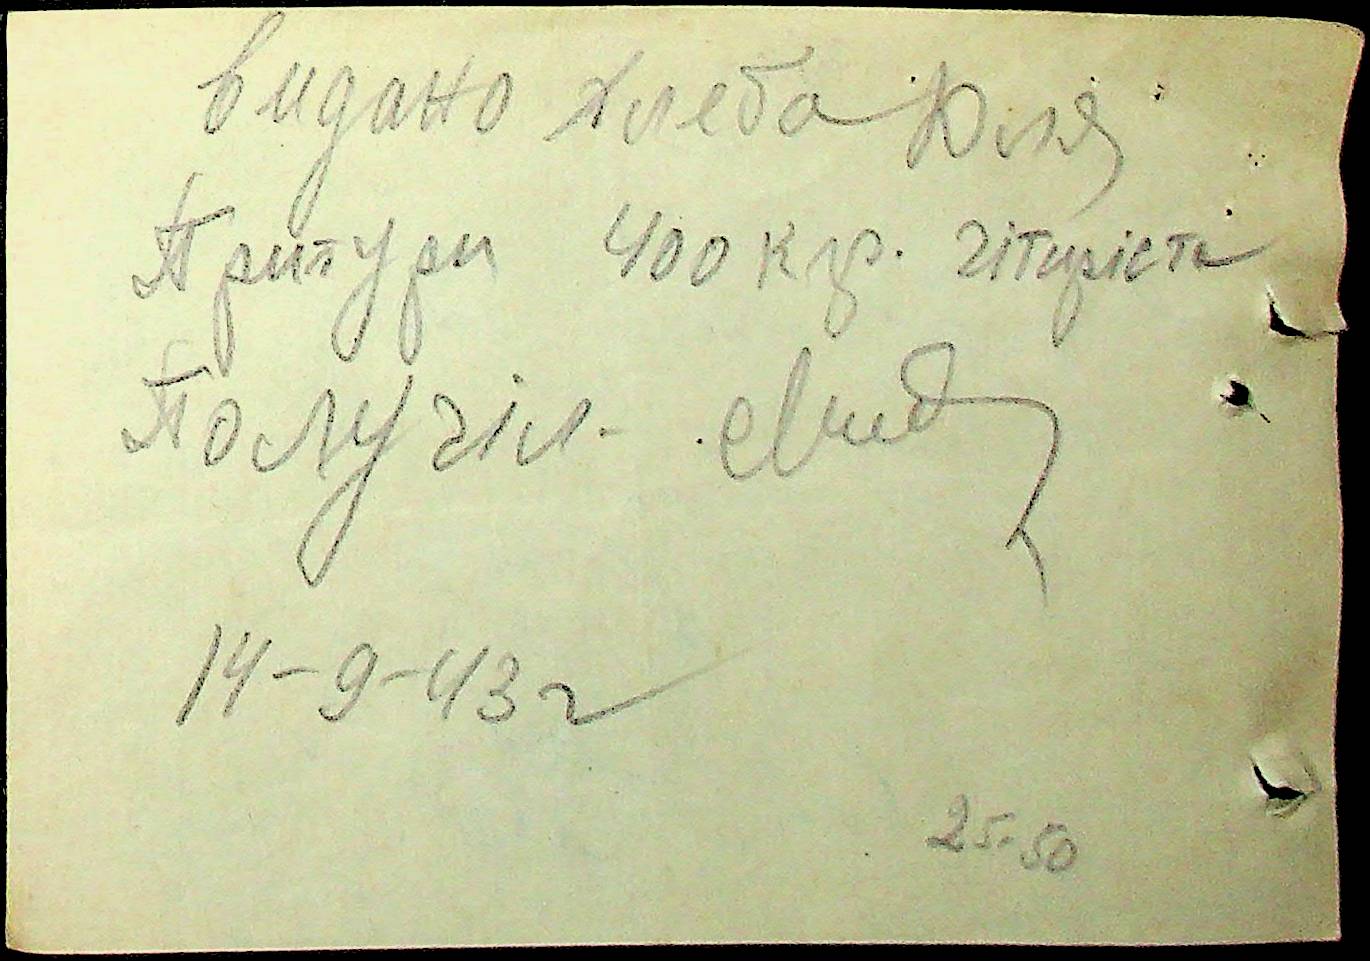 видано хлеба Для
Притури 400 кгр. чітиріста
Получіл.
14-9-43 г
25-50